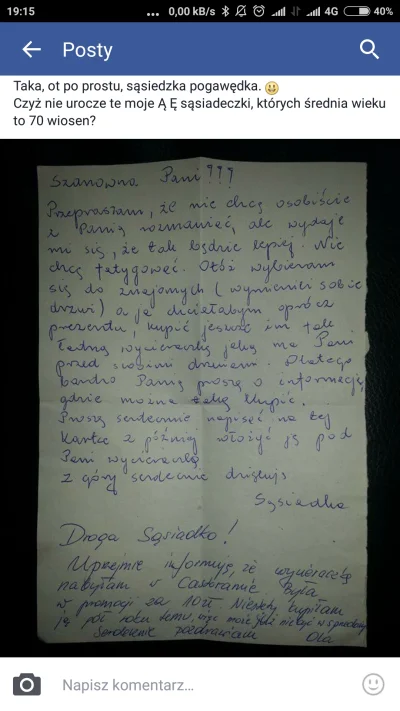 19:15
... 0,00 kB/s 4G 40%
Posty
Taka, ot po prostu, sąsiedzka pogawędka.
Czyż nie urocze te moje Ą Ę sąsiadeczki, których średnia wieku
to 70 wiosen?
Szanowna Pani!!!
Przepraszam, że nie chcę osobiście
z Panią rozmawiać, ale wydaje
mi się, że tak będzie lepiej. Nie
chcę fatygować. Otóż wybieram
się do znajomych (wymienili sobie
drzwi) a ja chciałabym oprócz
prezentu, kupić jeszcze im tak
ładną wycieraczkę jaką ma Pani
przed swoimi drzwiami. Dlatego
bardzo Panią proszę o informację,
gdzie można taką kupić.
Proszę serdecznie napisać na tej
kartce a później włożyć ją pod
Pani wycieraczkę
z góry serdecznie dziękuję
Sąsiadka
Droga Sąsiadko!
Uprzejmie informuję, że wycieraczkę
nabyłam w Castoramie. Była
w promocji za 10zł. Niestety kupiłam
ją pół roku temu, więc może już nie być w sprzedaży
Serdecznie pozdrawiam Ola
Napisz komentarz...